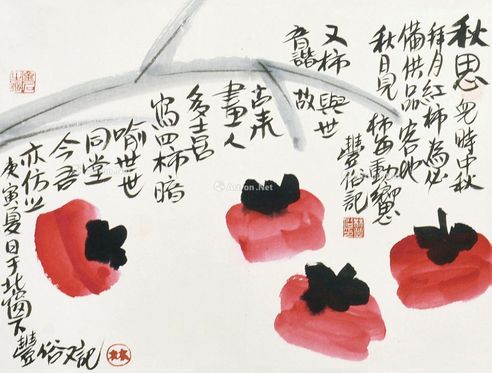 秋思兒時中秋
拜月紅柿為必
備供品客地
秋月見柿每動鄉思
豐俗記
又柿與世
音諧故
古来
畫人
多喜
寫四柿暗
喻世世
同堂
今吾
亦仿之
庚寅夏日于北窗下豐俗又記
Artron.Net